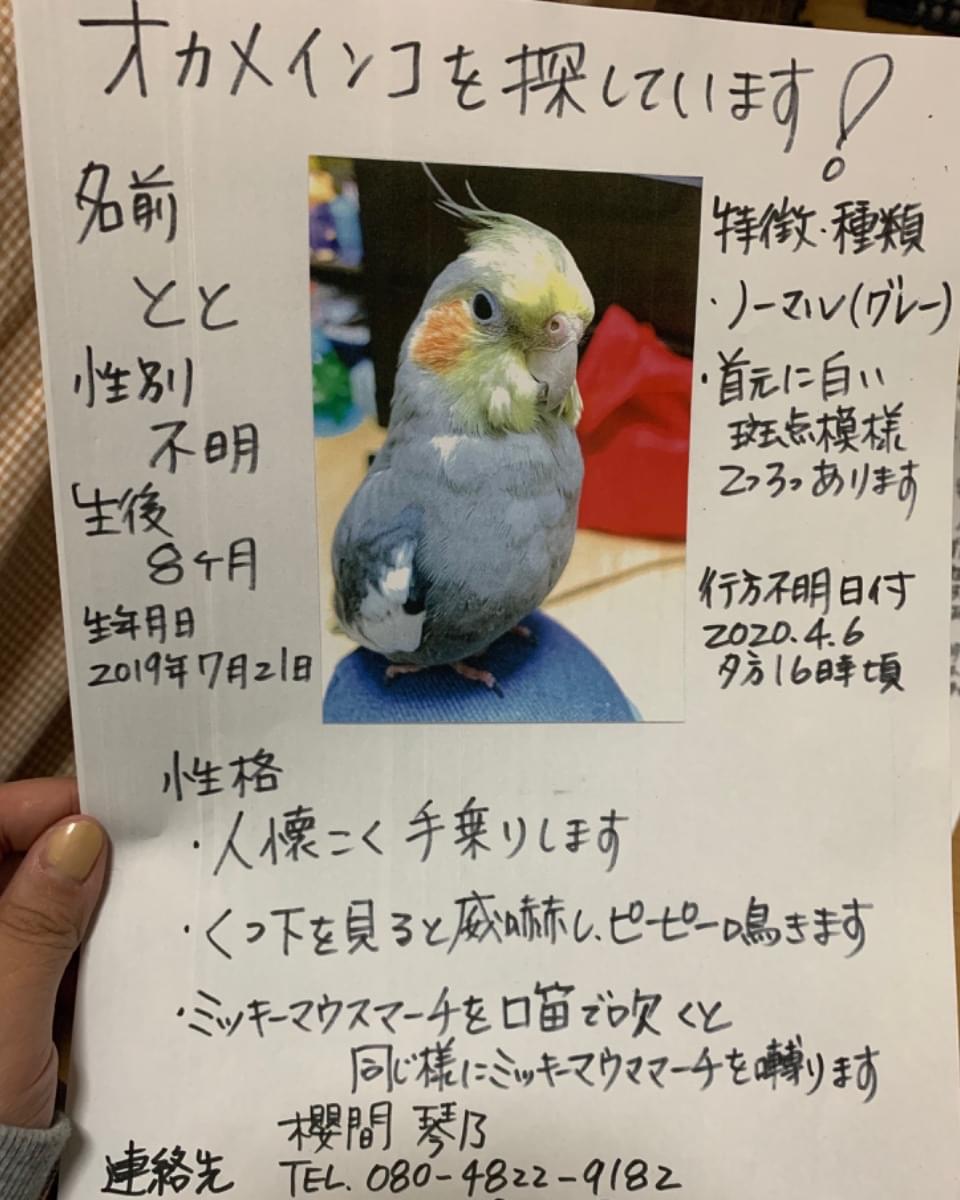 オカメインコを探しています!
名前
とと
性別
不明
生後
8ヶ月
生年月日
2019年7月21日
特徴・種類
・ノーマル(グレー)
・首元に白い
斑点模様
2つ3つあります
行方不明日付
2020.4.6
夕方16時頃
性格
・人懐こく手乗りします
・くつ下を見ると威嚇し、ピーピー鳴きます
・ミッキーマウスマーチを口笛で吹くと
同じ様にミッキーマウママーチを囀ります
櫻間 琴乃
連絡先 TEL. 080-4822-9182